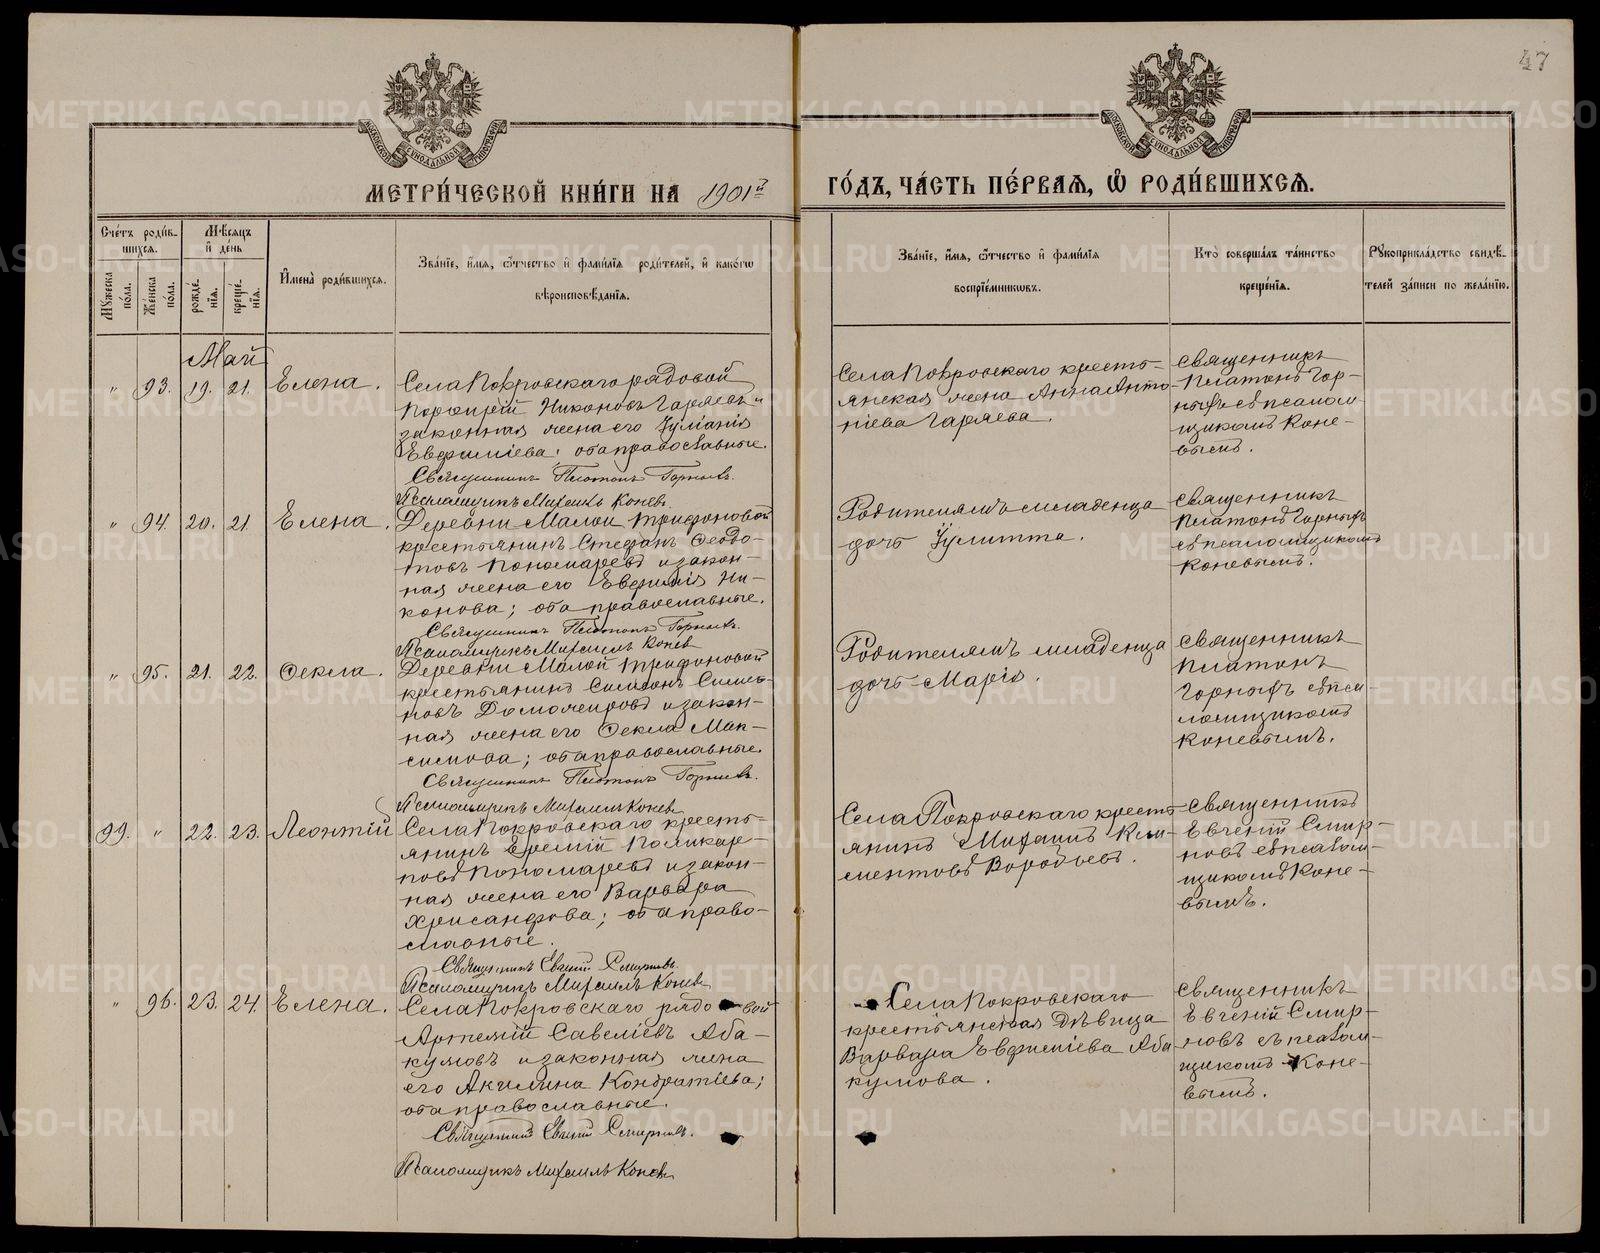 47
МЕТРИ́ЧЕСКОЙ КНИ́ГИ НА 1901й
ГО́ДЪ, ЧА́СТЬ ПЕ́РВАѦ, Ѡ РОДИ́ВШИХСѦ.
Сче́тъ роди́в-
шихсѧ.
Мꙋ́жеска по́ла.
Же́нска по́ла.
Мѣ́сѧцъ
и де́нь
рожде́нїѧ.
креще́нїѧ.
Имена̀ роди́вшихсѧ.
Зва́нїе, и́мѧ, ѻ́тчество и фами́лїѧ роди́телей, и како́гѡ
вѣроисповѣ́данїѧ.
Зва́нїе, и́мѧ, ѻ́тчество и фами́лїѧ
воспрїе́мникѡвъ.
Кто̀ соверша́лъ та́инство
креще́нїѧ.
Рꙋкоприкла́дство свидѣ́-
телей за́писи по жела́нїю.
Май
" 93. 19. 21. Елена.
Села Покровскаго рядовой
Порфирій Никоновъ Гаряевъ и
законная жена его Іуліанія
Евфиміева; оба православные.
Священникъ Платонъ Горныхъ.
Псаломщикъ Михаилъ Коневъ.
Села Покровскаго кресть-
янская жена Анна Анто-
ніева Гаряева.
Священникъ
Платонъ Гор-
ныхъ съ псалом-
щикомъ Коне-
вымъ.
" 94. 20. 21. Елена.
Деревни Малой Трифоновой
крестьянинъ Стефанъ Ѳеодо-
товъ Пономаревъ и закон-
ная жена его Евфимія Ни-
конова; оба православные.
Священникъ Платонъ Горныхъ.
Псаломщикъ Михаилъ Коневъ
Родителямъ младенца
дочь Іулитта.
Священникъ
Платонъ Горныхъ
съ псаломщикомъ
Коневымъ.
" 95. 21. 22. Ѳекла.
Деревни Малой Трифоновой
крестьянинъ Симеонъ Симео-
новъ Доможировъ и закон-
ная жена его Ѳекла Мак-
симова; оба православные.
Священникъ Платонъ Горныхъ.
Псаломщикъ Михаилъ Коневъ
Родителямъ младенца
дочь Марія.
Священникъ
Платонъ
Горныхъ съ пса-
ломщикомъ
Коневымъ.
99. " 22. 23. Леонтій
Села Покровскаго кресть-
янинъ Еремій Поликар-
повъ Пономаревъ и закон-
ная жена его Варвара
Хрисанфова; оба право-
славные.
Священникъ Евгеній Смирновъ.
Псаломщикъ Михаилъ Коневъ
Села Покровскаго кресть-
янинъ Михаилъ Кли-
ментовъ Воробьевъ.
Священникъ
Евгеній Смир-
новъ съ псалом-
щикомъ Коне-
вымъ.
" 96. 23. 24. Елена.
Села Покровскаго рядовой
Артемій Савеліевъ Аба-
кумовъ и законная жена
его Акилина Кондратіева;
оба православные.
Священникъ Евгеній Смирновъ.
Псаломщикъ Михаилъ Коневъ
Села Покровскаго
крестьянская дѣвица
Варвара Евфиміева Аба
кумова.
Священникъ
Евгеній Смир-
новъ съ псалом-
щикомъ Коне-
вымъ.